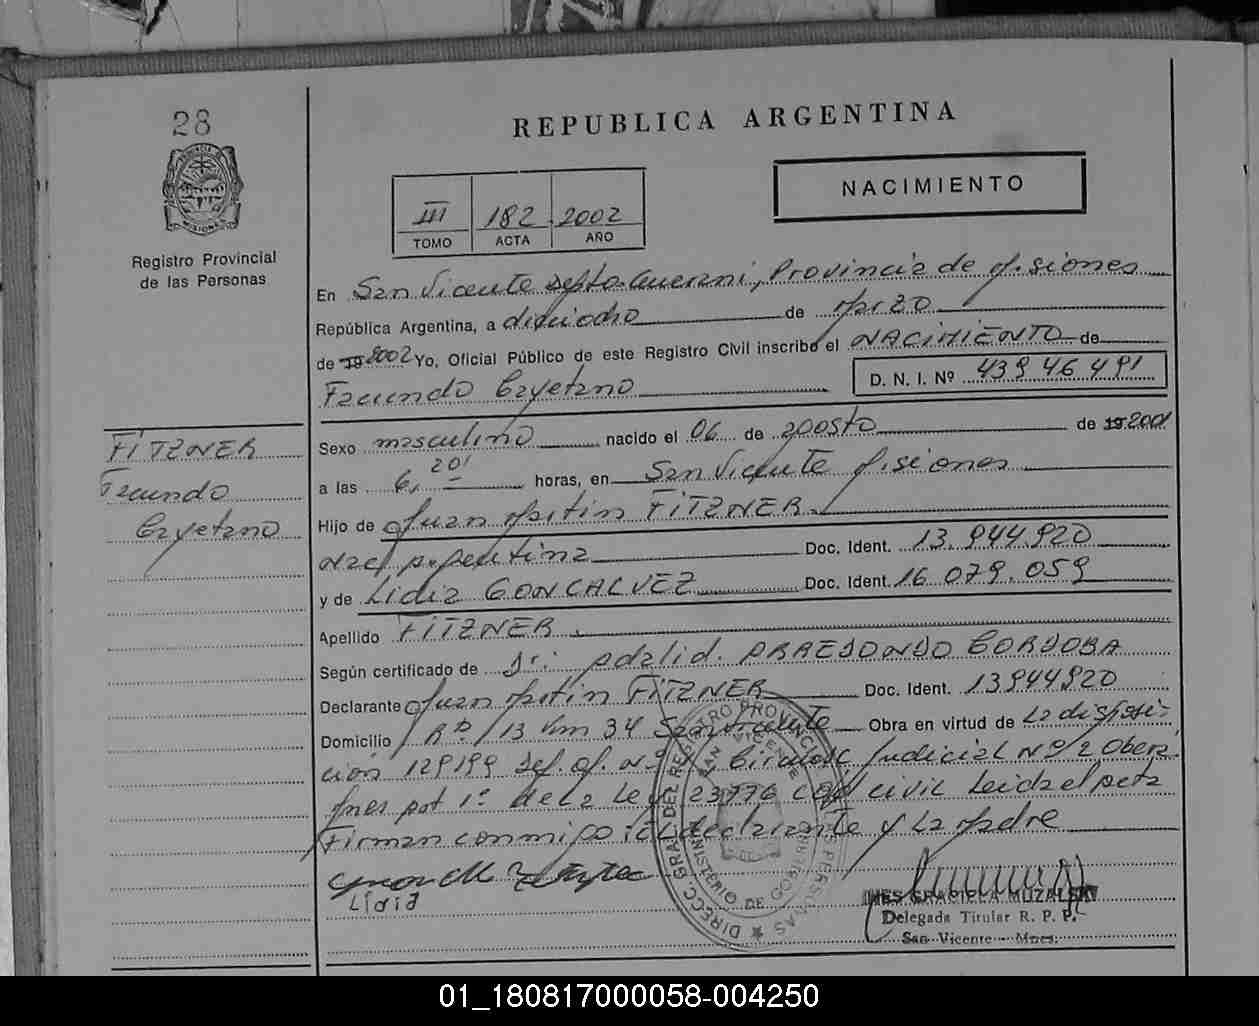 28
REPUBLICA ARGENTINA
NACIMIENTO
III 182 2002
TOMO ACTA AÑO
Registro Provincial
de las Personas
En San Vicente Depto. Guarani, Provincia de Misiones
República Argentina, a dieciocho de Marzo
de 19 2002 Yo, Oficial Público de este Registro Civil inscribo el NACIMIENTO de
Facundo Cayetano D. N. I. Nº 43946491
FITZNER
Facundo
Cayetano
Sexo masculino nacido el 06 de agosto de 19 2001
a las 6,20' horas, en San Vicente Misiones
Hijo de Juan Martin FITZNER
Nac/ Argentina Doc. Ident. 13.944.920
y de Lidia GONCALVEZ Doc. Ident. 16 079.059
Apellido FITZNER
Según certificado de Dr: Adalid. ARREDONDO CORDOBA
Declarante Juan Martin FITZNER Doc. Ident. 13944920
Domicilio 13 Km 34 San Vicente Obra en virtud de La disposi-
ción 129199 Def. Of. Nº Judicial Nº 2 Obera
Mnes Art 1º de La Ley 23776 Cod civil Leida el acta
Firman conmigo el declarante y La Madre
Lidia
DIRECC. GRAL. DEL REGISTRO PROVINCIAL PERSONAS
SAN VICENTE
MINISTERIO DE GOBIERNO
INES GRACIELA MUZALSKI
Delegada Titular R. P. P.
San Vicente - Mnes.
01_180817000058-004250